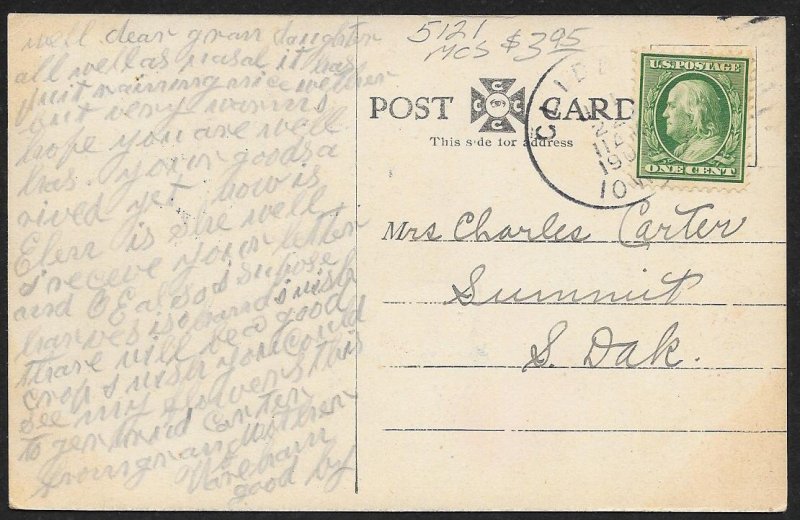 well dear gran daughter
all well as usal it has
but raining nice wether
but very warm
hope you are well
has your goods a
rived yet how is
Elen is she well
I receve your letter
and OE also I supose
harves is on hand I wish
thare will be a good
crop I wish you could
see my flowers this
to gertrud Carter
from grand Mother
good by
5121
MCS $3.95
POST CARD
This side for address
U.S. POSTAGE
ONE CENT
IOWA
Mrs Charles Carter
Summit
S. Dak.